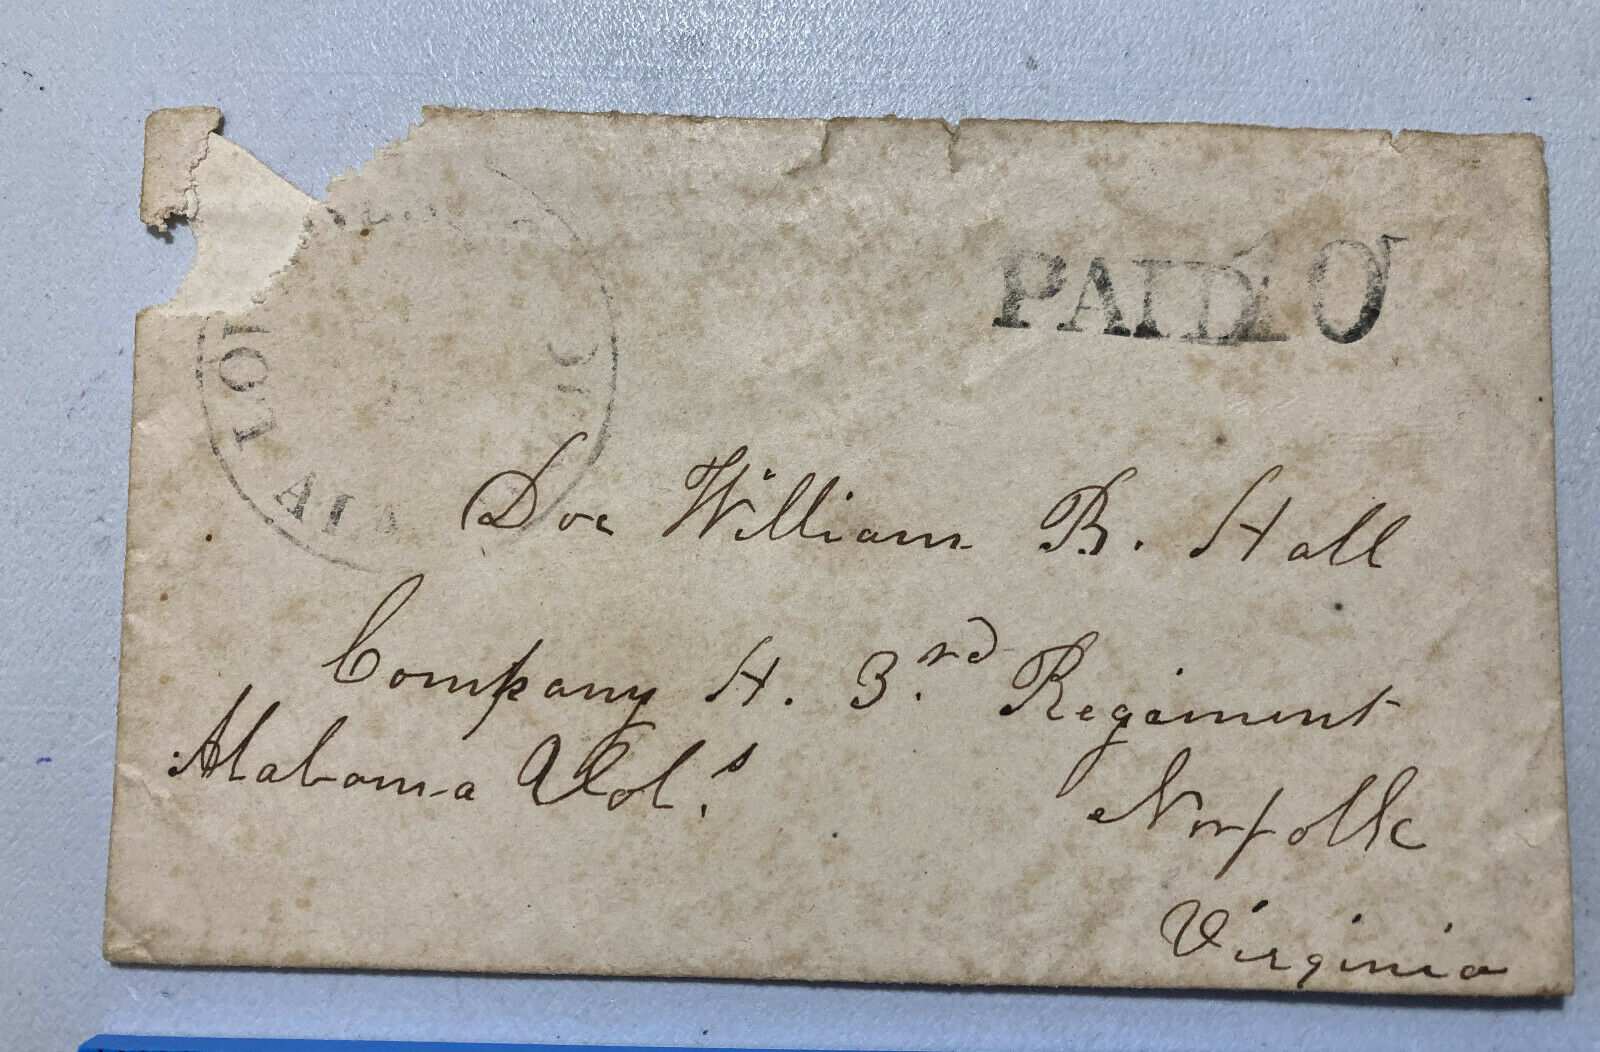 PAID 10
ALA
Doc William B. Hall
Company H. 3.rd Regiment
Alabama Vol.s
Norfolk
Virginia